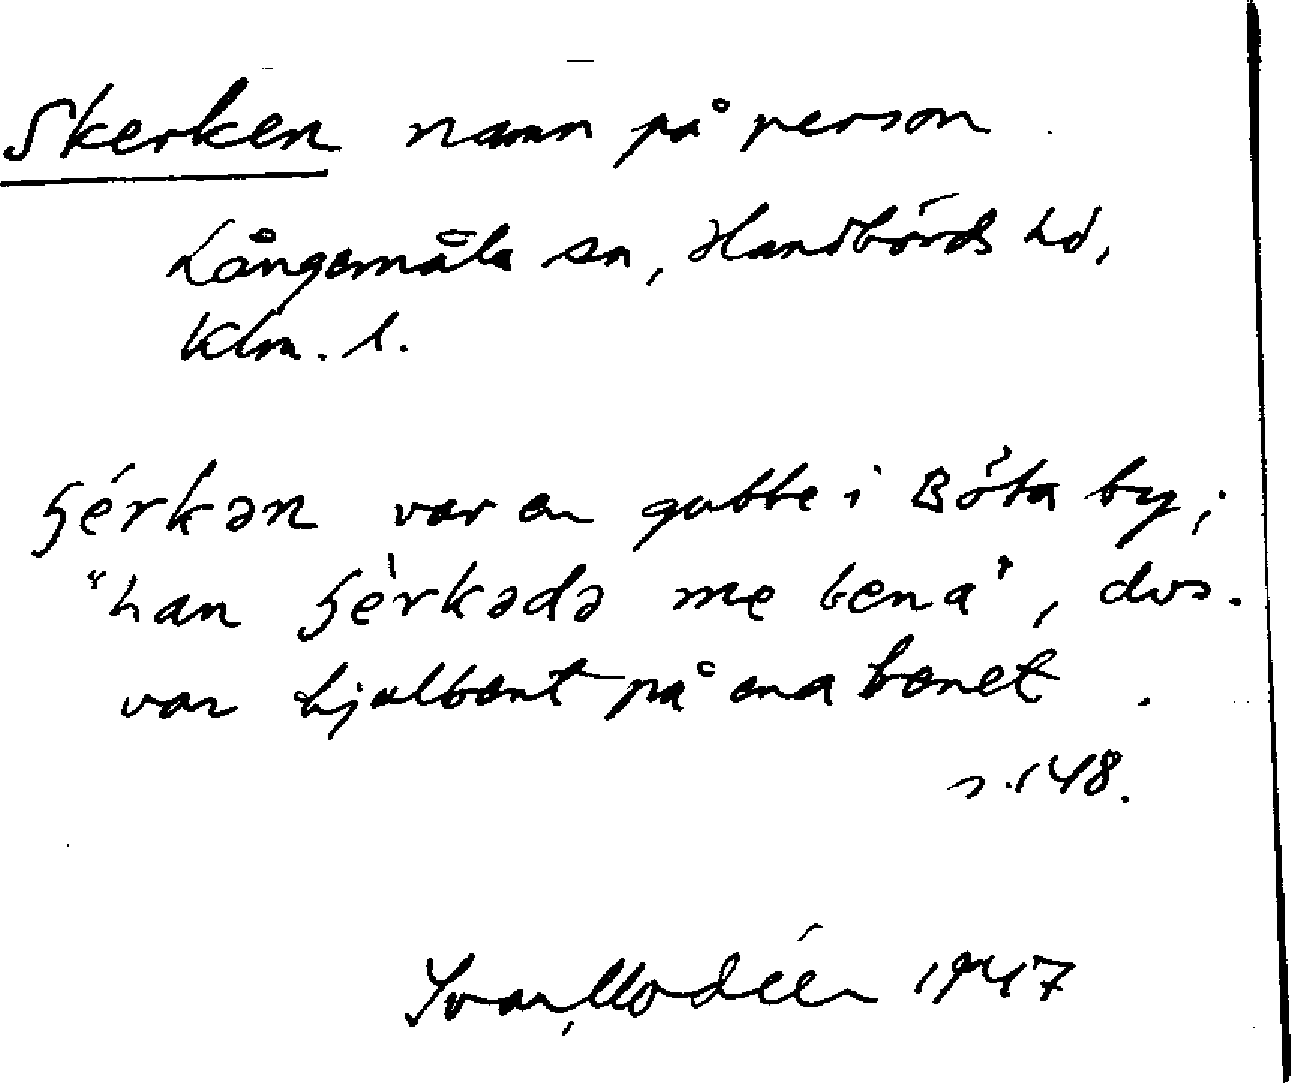 Skerken namn på person.
Långemåla sn, Handbörds hd,
Klm. l.
ʂérkən var en gubbe i Böta by;
"han ʂèrkədə me bena", dvs.
var hjulbent på ena benet.
s. 148.
Ivar Modéer 1947